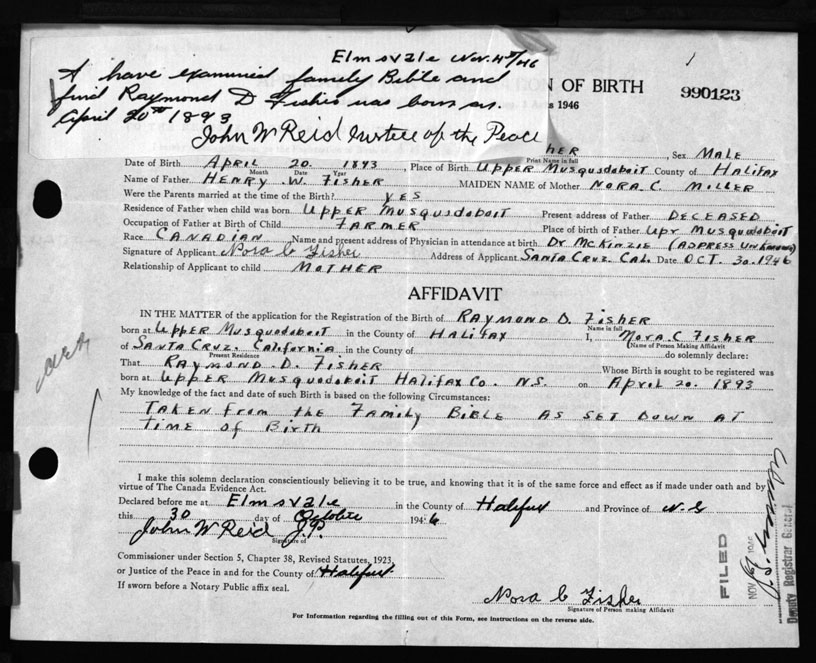 Elmsvale Nov. 4th/46
I have examined family Bible and
find Raymond D Fisher was born on
April 20th 1893
John W Reid Justice of the Peace
N OF BIRTH
990123
s 1946
HER, Sex MALE
Print Name in full
Date of Birth APRIL 20. 1893, Place of Birth UPPER MUSQUODOBOIT County of HALIFAX
Month Date Year
Name of Father HENRY .W. FISHER MAIDEN NAME of Mother NORA. C. MILLER
Were the Parents married at the time of the Birth? YES
Residence of Father when child was born UPPER MUSQUODOBOIT Present address of Father DECEASED
Occupation of Father at Birth of Child FARMER Place of birth of Father UPR MUSQUODOBOIT
Race CANADIAN Name and present address of Physician in attendance at birth DR MCKINZIE (ADDRESS UNKNOWN)
Signature of Applicant Nora C Fisher Address of Applicant SANTA CRUZ. CAL. Date OCT. 30. 1946
Relationship of Applicant to child MOTHER
AFFIDAVIT
IN THE MATTER of the application for the Registration of the Birth of RAYMOND D. FISHER
Name in full
born at UPPER MUSQUODOBOIT in the County of HALIFAX I, NORA. C FISHER
(Name of Person Making Affidavit
of SANTA CRUZ. CALIFORNIA in the County of do solemnly declare:
Present Residence
That RAYMOND .D. FISHER Whose Birth is sought to be registered was
born at UPPER MUSQUODOBOIT HALIFAX CO. N.S. on APRIL 20. 1893
My knowledge of the fact and date of such Birth is based on the following Circumstances:
TAKEN FROM THE FAMILY BIBLE AS SET DOWN AT
TIME OF BIRTH
I make this solemn declaration conscientiously believing it to be true, and knowing that it is of the same force and effect as if made under oath and by
virtue of The Canada Evidence Act.
Declared before me at Elmsvale in the County of Halifax and Province of N.S
this 30 day of October 1946
John W Reid J.P.
Signature of
Commissioner under Section 5, Chapter 38, Revised Statutes, 1923,
or Justice of the Peace in and for the County of Halifax
If sworn before a Notary Public affix seal.
Nora C Fisher
Signature of Person making Affidavit
For Information regarding the filling out of this Form, see instructions on the reverse side.
FILED
NOV 1946
Deputy Registrar General